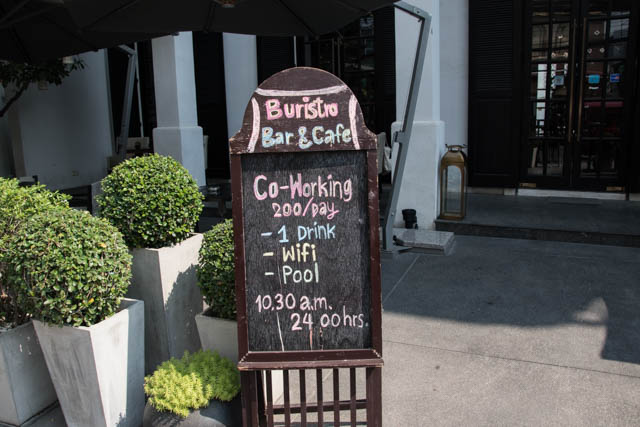 Buristro
Bar & Cafe
Co-Working
200/Day
- 1 Drink
- Wifi
- Pool
10.30 a.m.
24 00hrs.